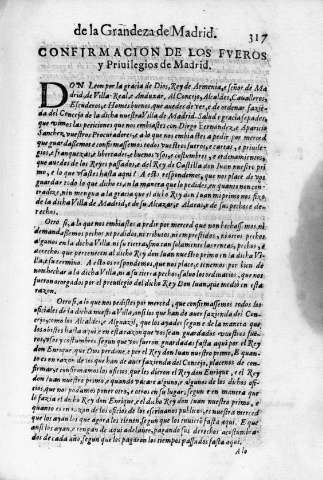 de la Grandeza de Madrid. 317
CONFIRMACION DE LOS FVEROS
y Priuilegios de Madrid.
DON Leon por la gracia de Dios, Rey de Armenia, e señor de Ma
drid, de Villa-Real, e Andujar, Al Concejo, Alcaldes, Caualleros,
Escuderos, e Homes buenos, que auedes de ver, e de ordenar fazien
da del Concejo de la dicha nuestra Villa de Madrid. Salud e gracia sepades,
que vimos las peticiones que nos embiastes con Diego Fernandez, e Aparicio
Sanchez, vuestros Procuradores: e a lo que nos embiastes a pedir por merced
que guardassemos e confirmassemos todos vuestros fueros, e cartas, e priuile
gios, e franquezas, e libertades, e buenos vsos, e costumbres, e ordenamientos,
que auedes de los Reyes passados, e del Rey de Castilla don Iuan nuestro pri
mo, e lo que vsastes hasta aqui: A esto respondemos, que nos place de vos
guardar todo lo que dicho es, en la manera que lo pedides, en quanto non con-
nin mengua a la gracia que el dicho Rey don Iuan nuestro primo nos fizo,
de la dicha Villa de Madrid, de su Alcazar, e de sus pechos e de
rechos.
Otro si, a lo que nos embiastes a pedir por merced que non echassemos, ni
demandassemos pechos, ni pedidos, ni tributos, ni emprestidos, ni seruicios, ni otros pechos
algunos en la dicha Villa, ni su tierra, sino tan solamente las rentas, pechos, e
derechos que pertenecen al dicho Rey don Iuan nuestro primo en la dicha Vi-
lla, e su termino. A esto respondemos, que nos place, e tenemos por bien de
non echar a la dicha Villa, ni a su tierra pechos saluo los ordinarios, que nos
fueron otorgados por el preuilegio del dicho Rey don Iuan, que modo en esta
razon.
Otro si, a lo que nos pedistes por merced, que confirmassemos todos los
oficiales de la dicha nuestra Villa, assi los que han de auer fazienda del Con-
cejo, como los Alcaldes, e Alguazil, que los ayades segun e de la manera que
los ouistes hasta aqui: e en esta razon que vos sean guardados vuestros fue-
ros, e vsos, e costumbres segun que vos fueron guardadas fasta aqui por el Rey
don Enrique, que Dios perdone, e por el Rey don Iuan nuestro primo. E quan-
to en razon de los que han de auer fazienda del Concejo, placenos de con-
firmar, e confirmamos los oficios que les dieron el Rey don Enrique, e el Rey
don Iuan nuestro primo, e quando vacare alguno, o algunos de los dichos ofi-
cios, que nos podamos poner otro, o otros en su lugar, segun e en manera que
lo fazia el dicho Rey don Enrique, e el dicho Rey don Iuan nuestro primo, e
quanto es en razon de los oficios de los escriuanos publicos, es nuestra merced
que los ayan los que agora los tienen segun que los touierõ fasta aqui. E que
ansi los ayan, e tengan de aqui adelante, pagando sus derechos acostumbra-
dos de cada año, segun que los pagaron los tiempos passados fasta aqui.
A lo